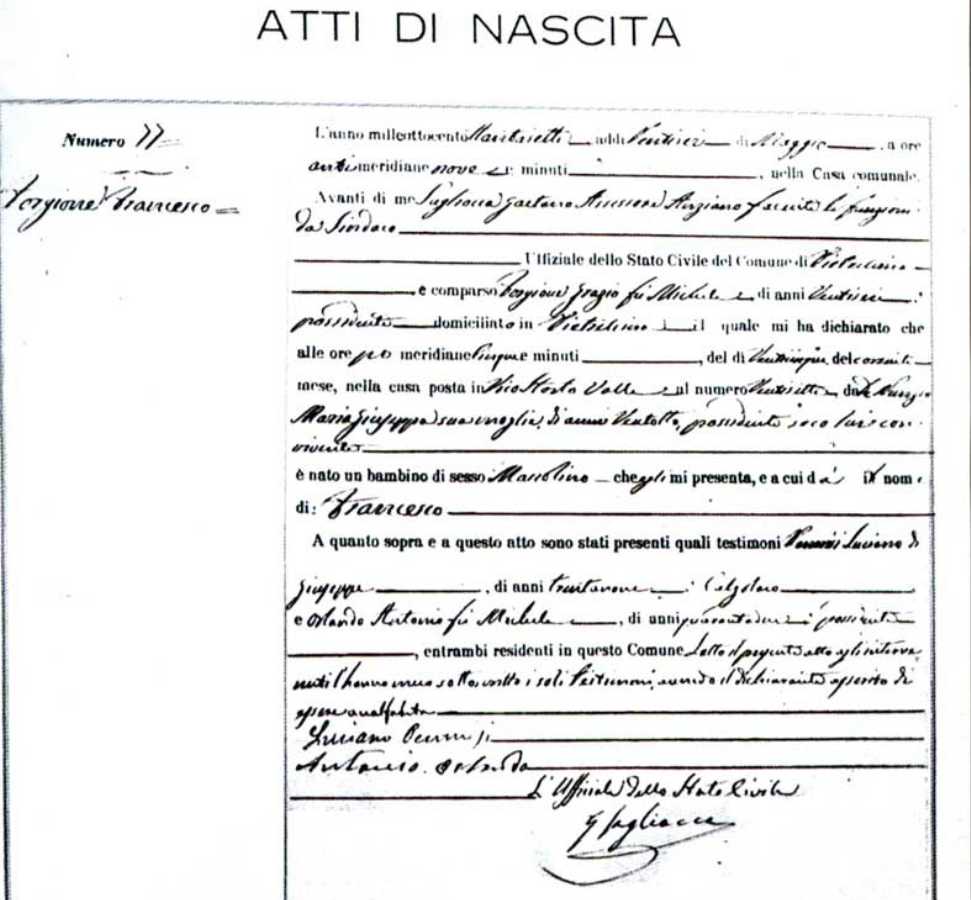 ATTI DI NASCITA
Numero 77
Forgione Francesco
L'anno millottocento ottantasette, addì ventisei di Maggio, a ore
antimeridiane nove e minuti, nella Casa comunale.
Avanti di me Tagliacca Gaetano Assessore Anziano facente le funzioni
da Sindaco
Uffiziale dello Stato Civile del Comune di Pietrelcina
è comparso Forgione Grazio fu Michele, di anni ventisei
possidente domiciliato in Pietrelcina il quale mi ha dichiarato che
alle ore po meridiane cinque e minuti, del dì venticinque del corrente
mese, nella casa posta in Vico Storto Valle al numero ventisette, da De Nunzio
Maria Giuseppa sua moglie, di anni ventotto, possidente, seco lui con-
vivente
è nato un bambino di sesso Mascolino che egli mi presenta, e a cui dà il nome
di: Francesco
A quanto sopra e a questo atto sono stati presenti quali testimoni Pennisi Luciano di
Giuseppe, di anni trentanove, Calzolaio
e Orlando Antonio fu Michele, di anni quarantadue, possidente
, entrambi residenti in questo Comune. Letto il presente atto agli interve-
nuti l'hanno meco sottoscritto i soli testimoni, avendo il dichiarante asserito di
essere analfabeta
Luciano Pennisi
Antonio Orlando
L'Uffiziale dello Stato Civile
G Tagliacca